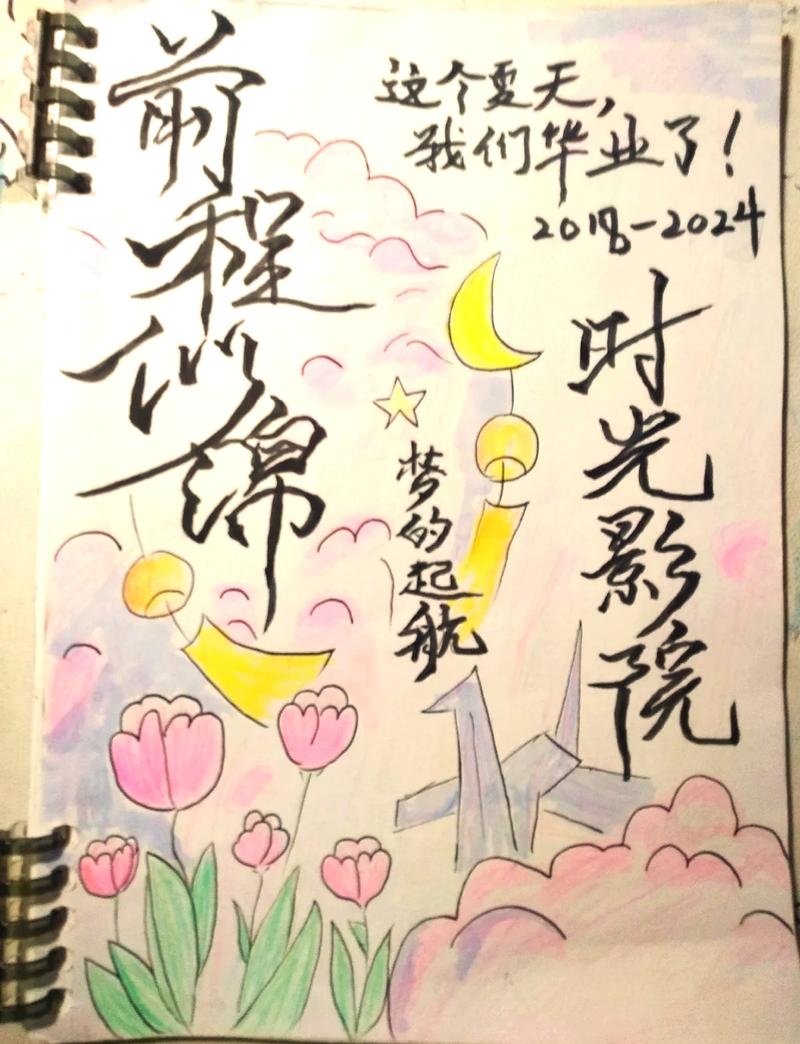 前程似锦
这个夏天,
我们毕业了!
2018-2024
时光影院
梦的起航